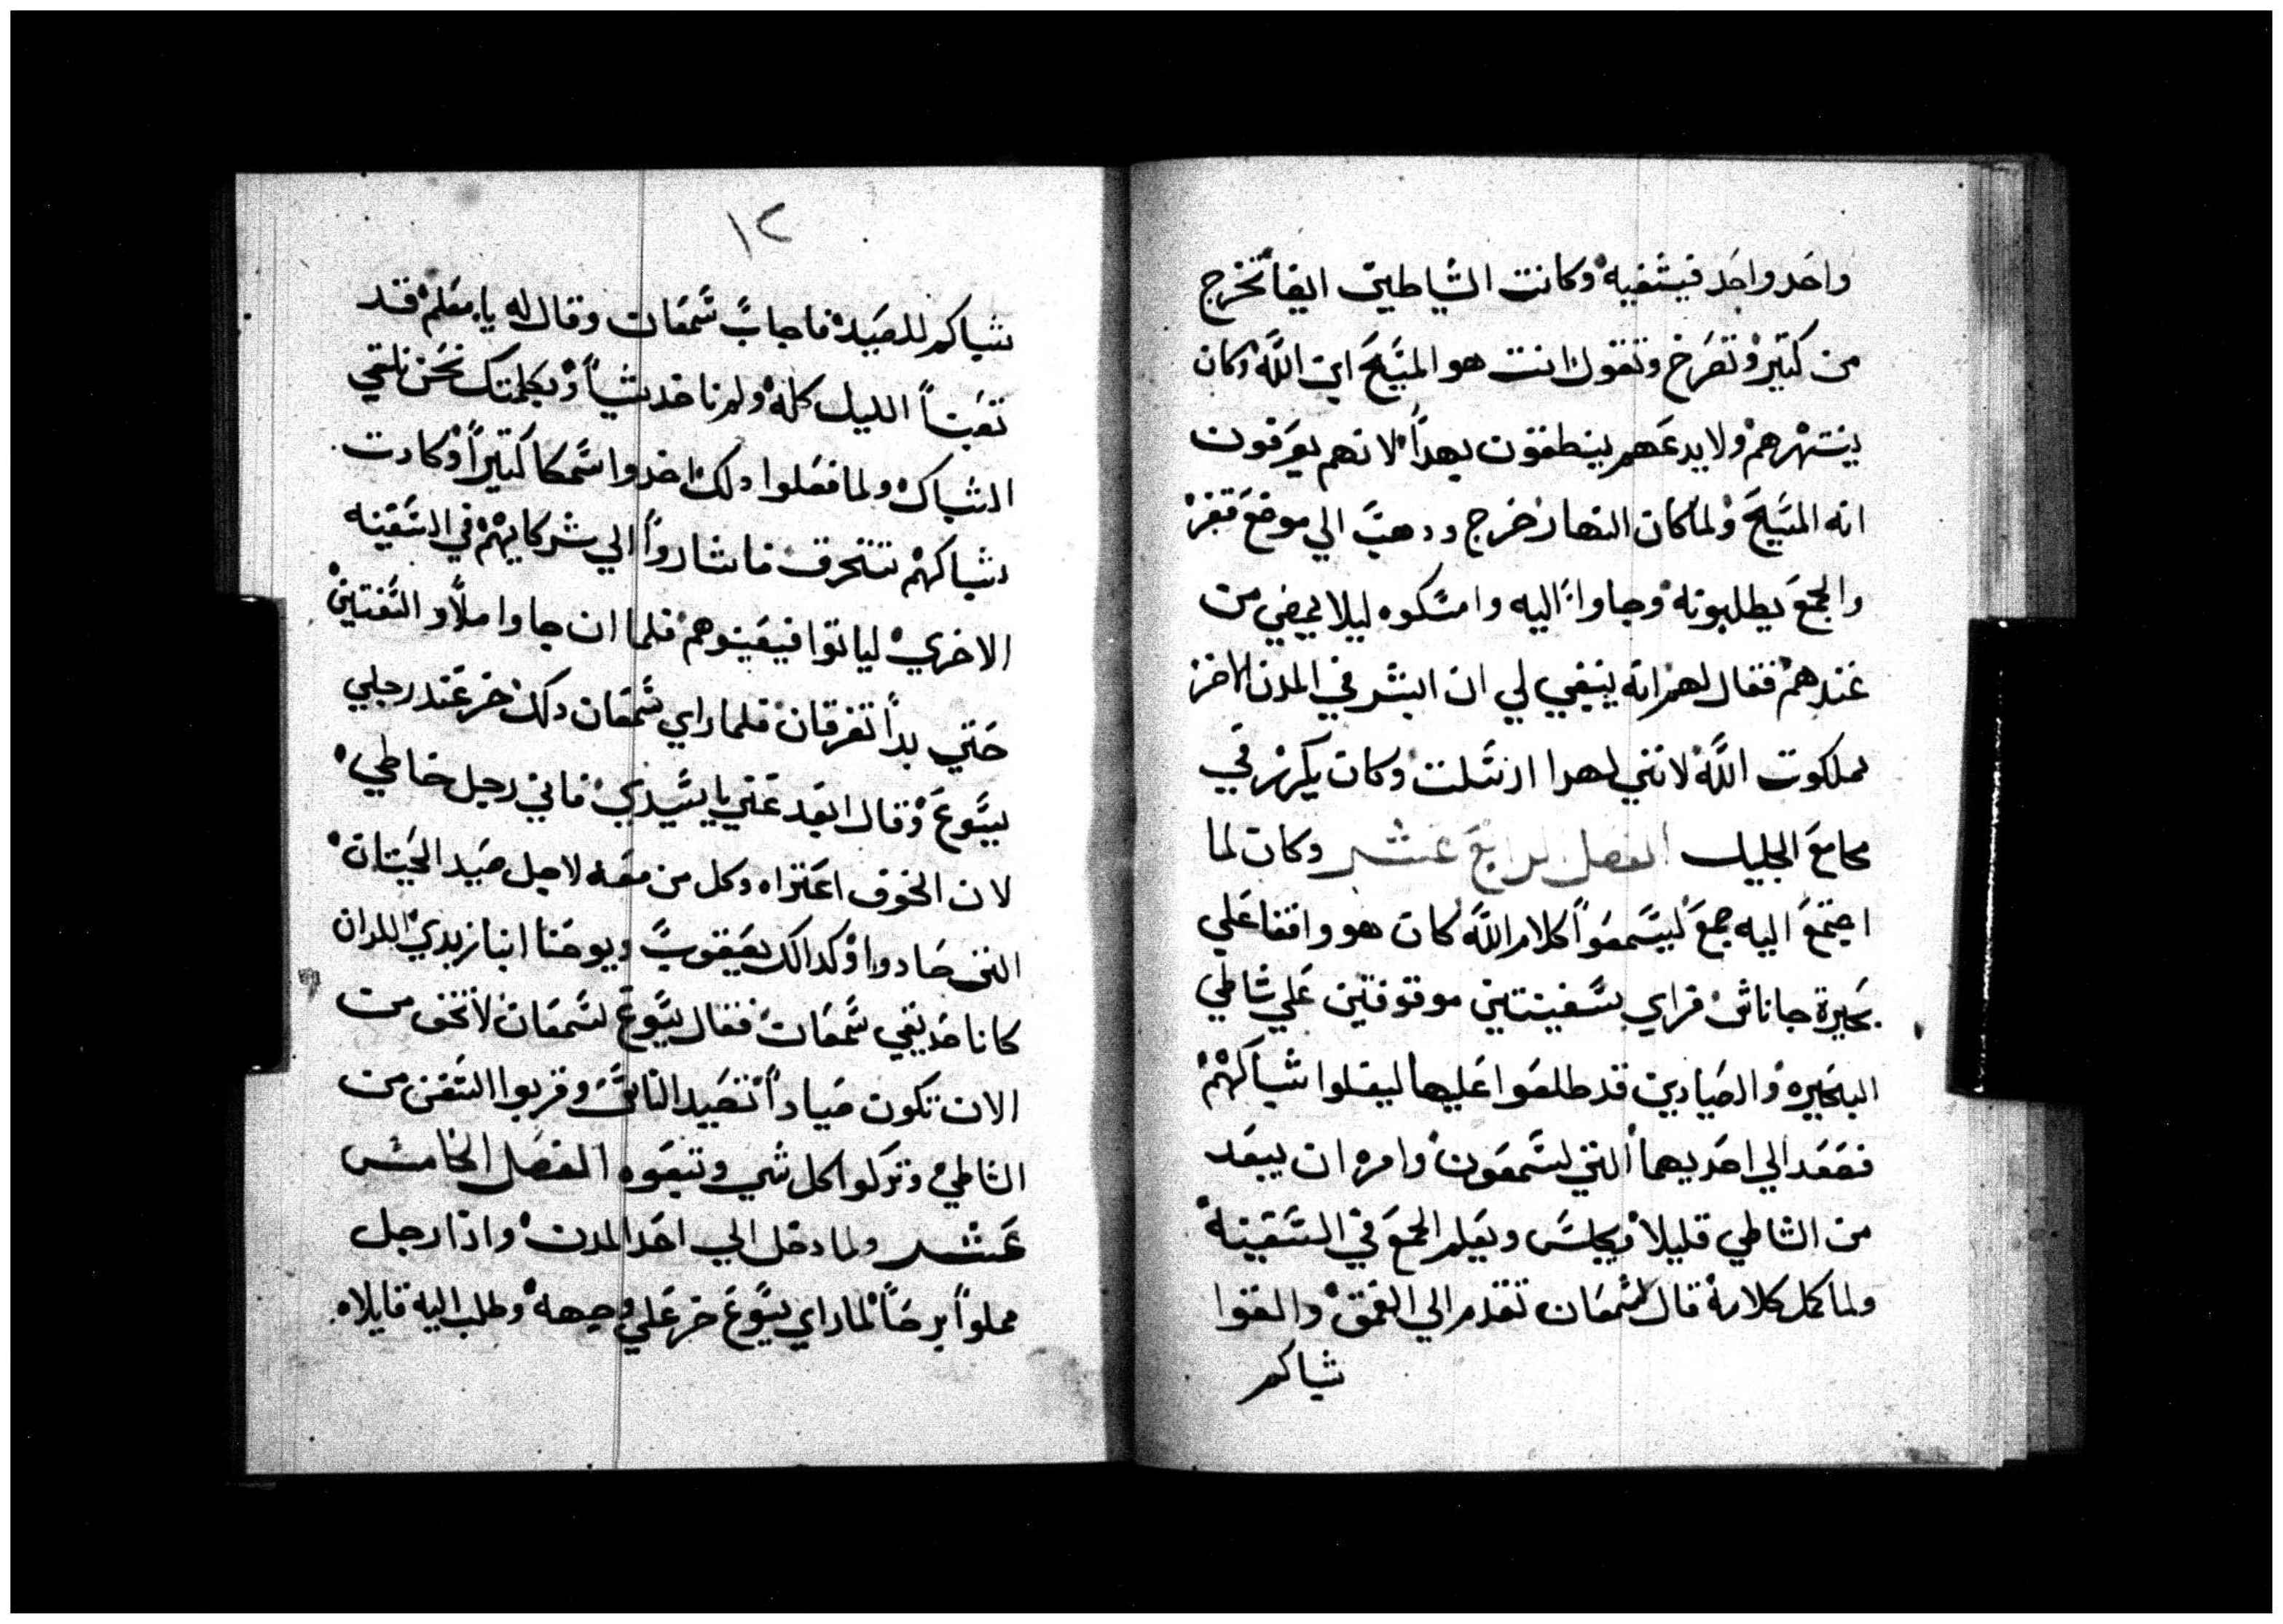 واحد واحد فيشفيه وكانت الشياطين ايضا تخرج
من كتير وتصرخ وتقول انت هو المسيح ابن الله وكان
ينتهرهم ولا يدعهم ينطقون بهدا لانهم يعرفون
انه المسيح ولما كان النهار خرج ودهب الي موضع قفر
والجمع يطلبونه وجاوا اليه وامسكوه ليلا يمضي من
عندهم فقال لهم انه ينبغي لي ان ابشر في المدن الاخر
بملكوت الله لانني لهدا ارسلت وكان يكرز في
مجامع الجليل الفصل الرابع عشر وكان لما
اجتمع اليه جمع ليسمعوا كلام الله كان هو واقفا علي
بحيرة جاناشر فراي بسفينتين موقوفتين علي شاطي
البحيره والصيادين قد طلعوا عليها ليغسلوا شباكهم
فصعد الي احديهما التي لسمعون وامره ان يبعد
من الشاطي قليلا وجلس ويعلم الجمع في السفينة
ولما كمل كلامه قال لشمعان تقدم الي العمق والقوا
شباكم
١٢
شباكم للصيد فاجاب شمعان وقال له يا معلم قد
تعبنا الليل كله ولم ناخد شياً وبكلمتك نحن نلقي
الشباك ولما فعلوا دلك اخدوا سمكا كتيراً وكادت
شباكهم تتخرق فاشاروا الي شركايهم في السفينه
الاخري لياتوا فيعينوهم فلما ان جاوا ملاو السفتين
حتي بدا تغرقان فلما راي شمعان دلك خر عند رجلي
يسوع وقال ابعد عني يا سيدي فاني رجل خاطي
لان الخوف اعتراه وكل من معه لاجل صيد الحيتان
التي صادوا وكدالك يعقوب ويوحنا ابنا زبدي اللدان
كانا صديقي شمعان فقال يسوع لشمعان لا تخف من
الان تكون صياداً تصيد الناس وقربوا السفن من
الشاطي وتركوا كل شي وتبعوه الفصل الخامس
عشر ولما دخل الي احد المدن واذا رجل
مملوا برصاً لما راي يسوع خر علي وجهه وطلب اليه قايلا